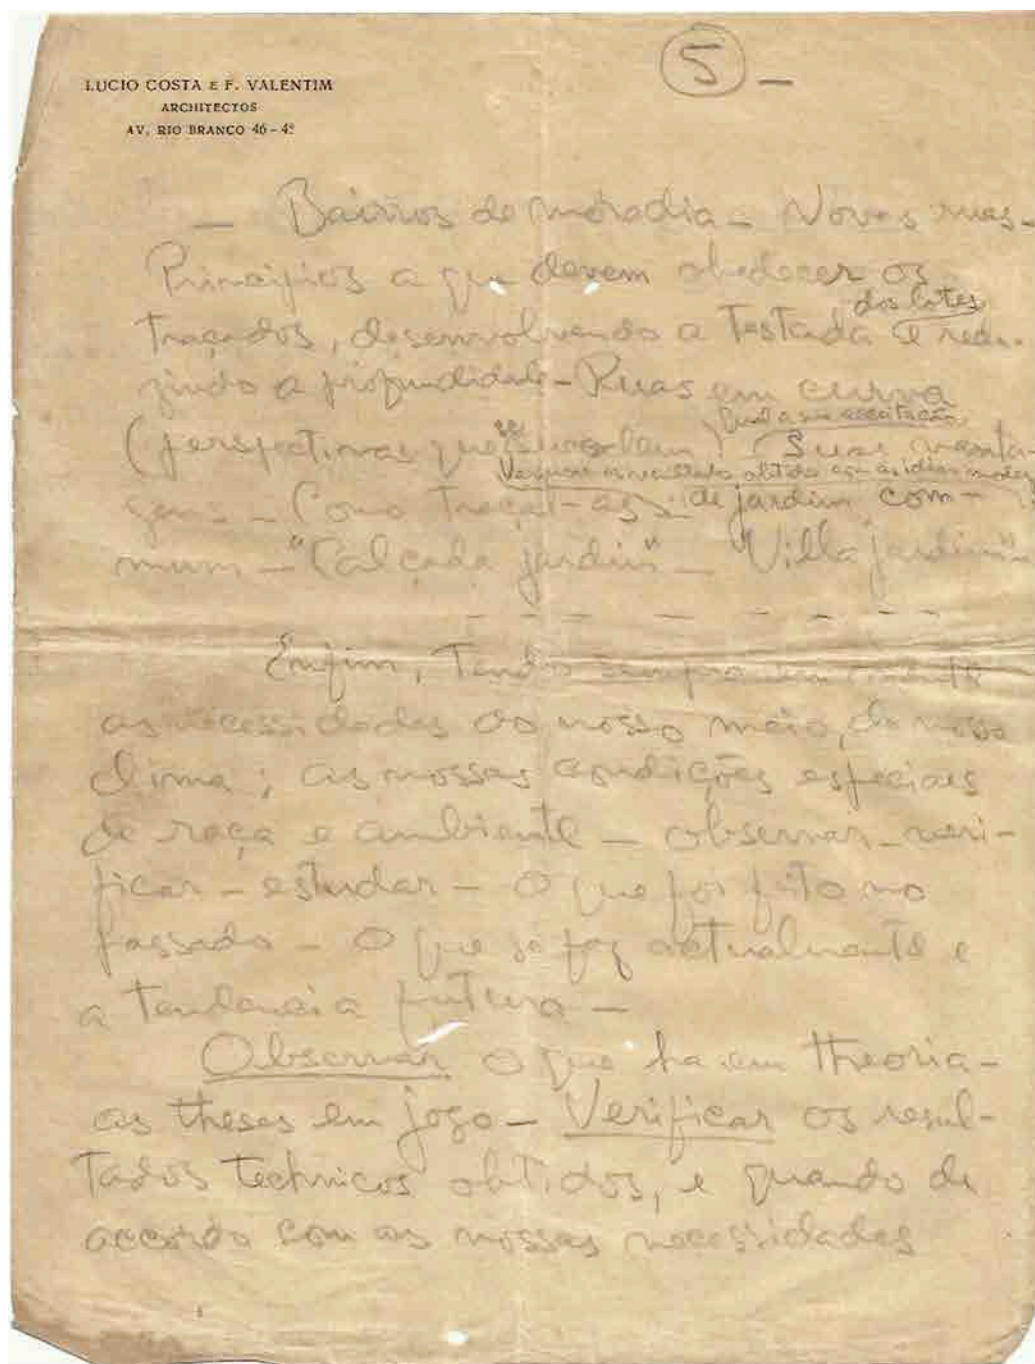 LUCIO COSTA E F. VALENTIM
ARCHITECTOS
AV. RIO BRANCO 46-4º
5 -
- Bairros de moradia - Novas ruas -
Principios a que devem obedecer os
dos lotes
traçados, desenvolvendo a testada e redu-
zindo a profundidade - Ruas em curva
Qual a sua acceitação
(perspectivas que se Suas vanta-
Verificar os resultados obtidos com as idéias modernas
gens - Como traçal-as - de jardim com-
mum - "Calçada jardin" - "Villa jardim" -
- - - - - - - -
Emfim, tendo sempre em
as necessidades do nosso meio, do nosso
clima; as nossas condições especiaes
de raça e ambiente - observar - veri-
ficar - estudar - O que foi feito no
passado - O que se faz actualmente e
a tendencia futura -
Observar o que ha em theoria -
as theses em jogo - Verificar os resul-
tados technicos obtidos, e quando de
accordo com as nossas necessidades